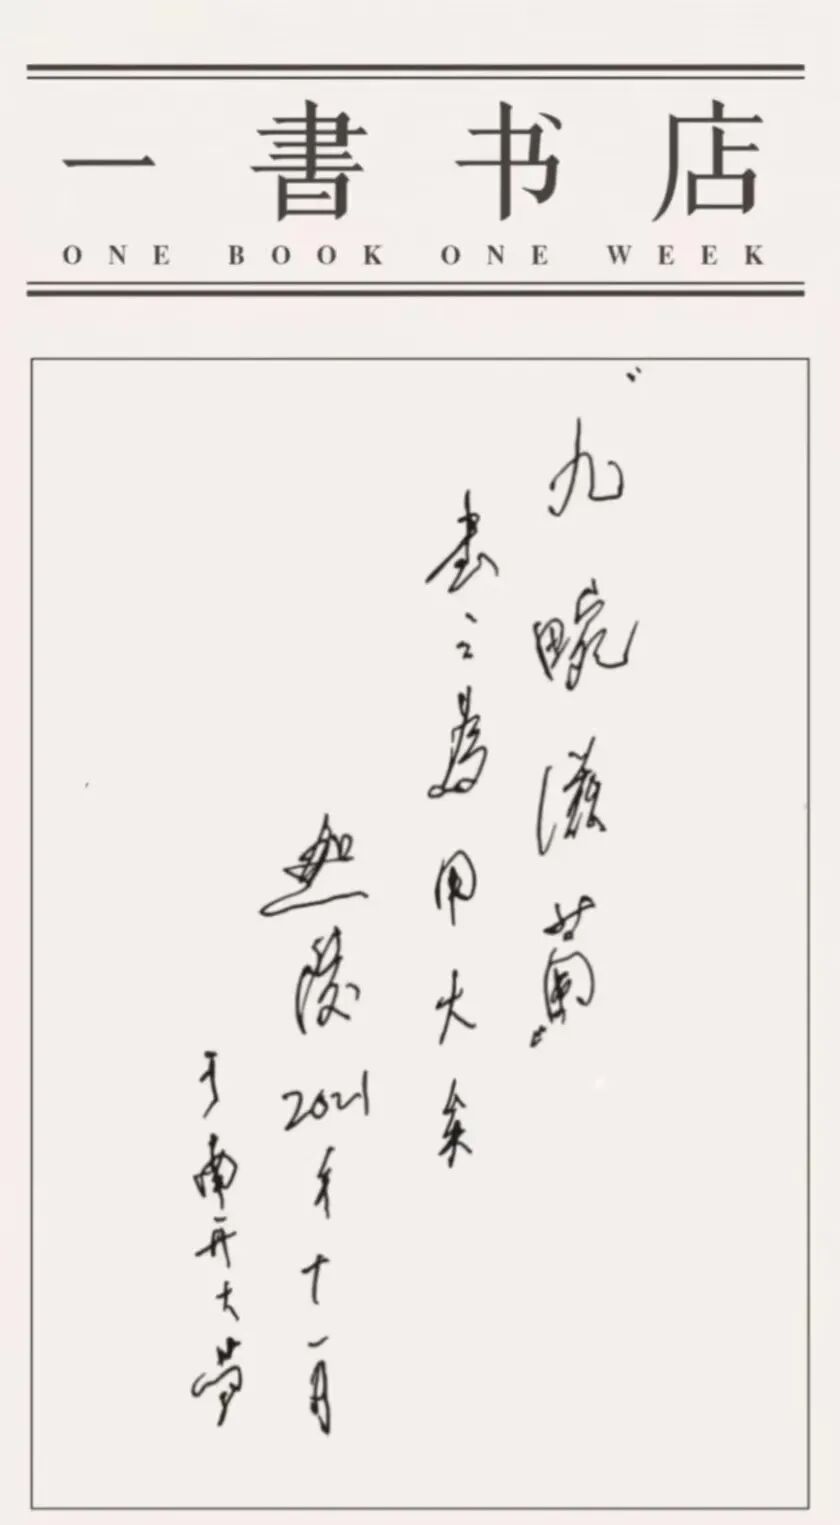 一書书店
ONE BOOK ONE WEEK
“九畹滋蘭”
書之為用大矣
迦陵 2021年十一月
于南开大學